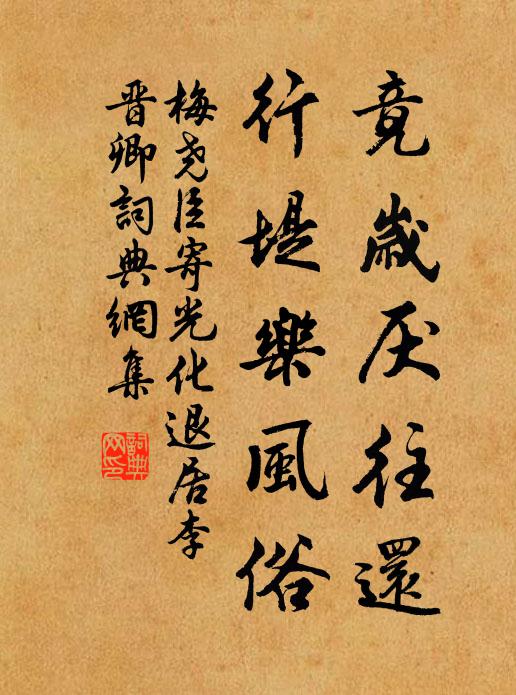 竟歲厌往還
行堤樂風俗
梅尧臣寄光化退居李
晋卿詞典網集
詞典网印